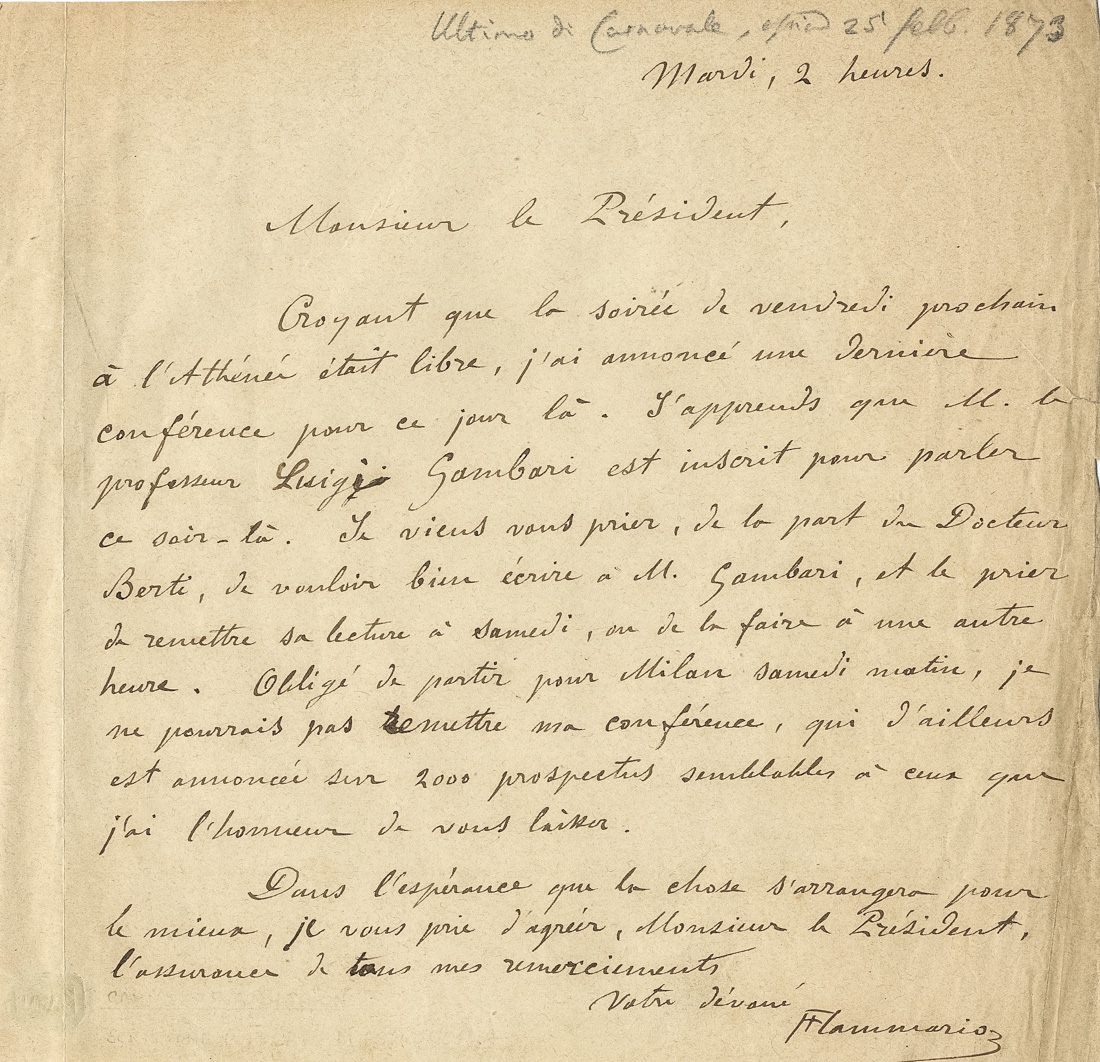 Ultimo di Carnavale, ossia 25 febb. 1873
Mardi, 2 heures.
Monsieur le Président,
Croyant que la soirée de vendredi prochain
à l'Athénée était libre, j'ai annoncé une dernière
conférence pour ce jour là. J'apprends que M. le
professeur Luigi Gambari est inscrit pour parler
ce soir-là. Je viens vous prier, de la part du Docteur
Berti, de vouloir bien écrire à M. Gambari, et le prier
de remettre sa lecture à samedi, ou de la faire à une autre
heure. Obligé de partir pour Milan samedi matin, je
ne pourrais pas remettre ma conférence, qui d'ailleurs
est annoncée sur 2000 prospectus semblables à ceux que
j'ai l'honneur de vous laisser.
Dans l'espérance que la chose s'arrangera pour
le mieux, je vous prie d'agréer, Monsieur le Président,
l'assurance de tous mes remerciements
Votre dévoué
Flammarion